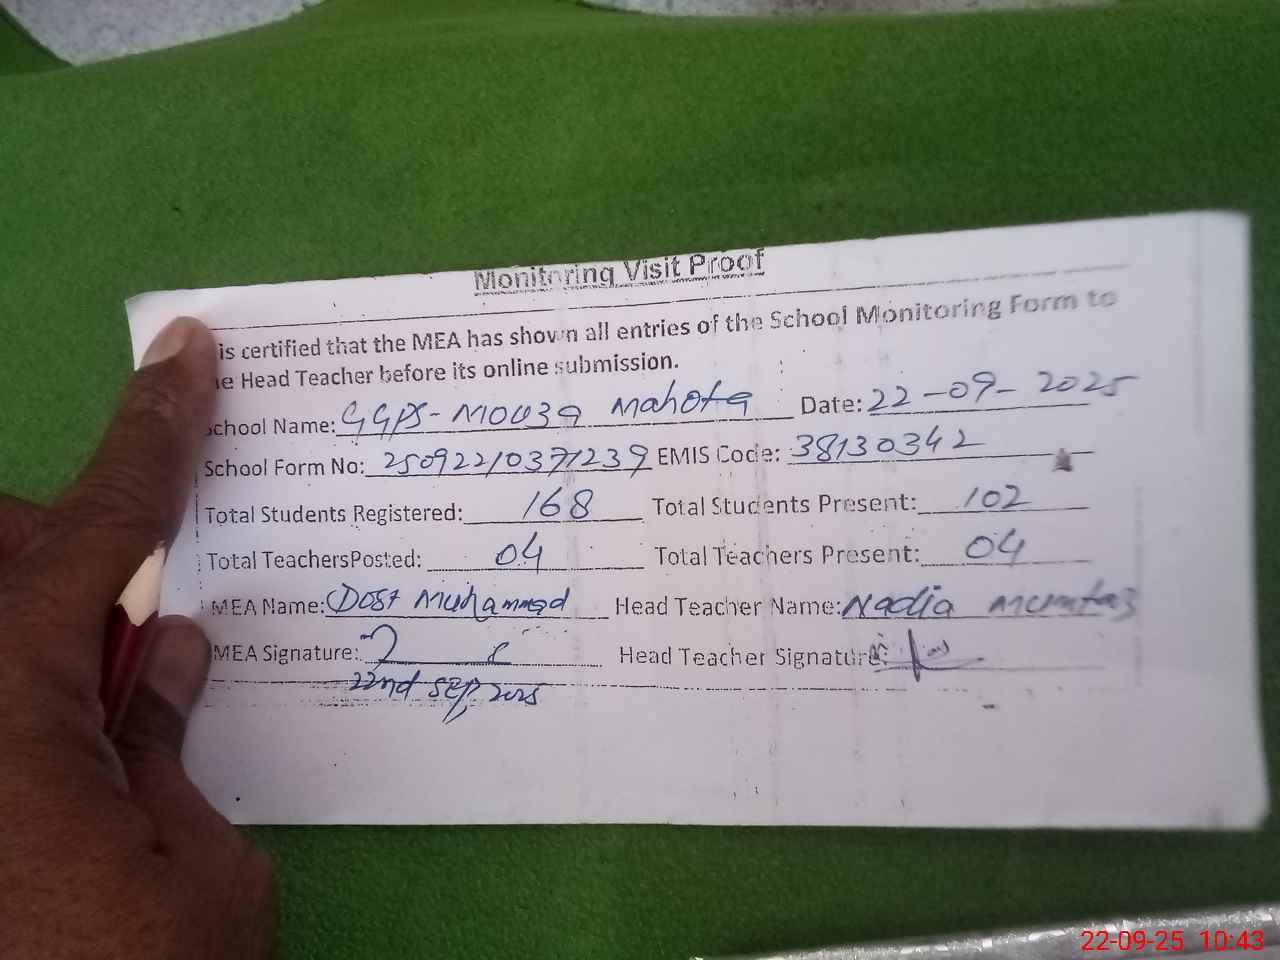 Monitoring Visit Proof
is certified that the MEA has shown all entries of the School Monitoring Form to
he Head Teacher before its online submission.
School Name: GGPS-Mouza Mahota Date: 22-09-2025
School Form No: 25092210371239 EMIS Code: 38130342
Total Students Registered: 168 Total Students Present: 102
Total TeachersPosted: 04 Total Teachers Present: 04
MEA Name: Dost Muhammad Head Teacher Name: Nadia Mumtaz
MEA Signature: Head Teacher Signature:
22nd Sep 2025
22-09-25 10:43